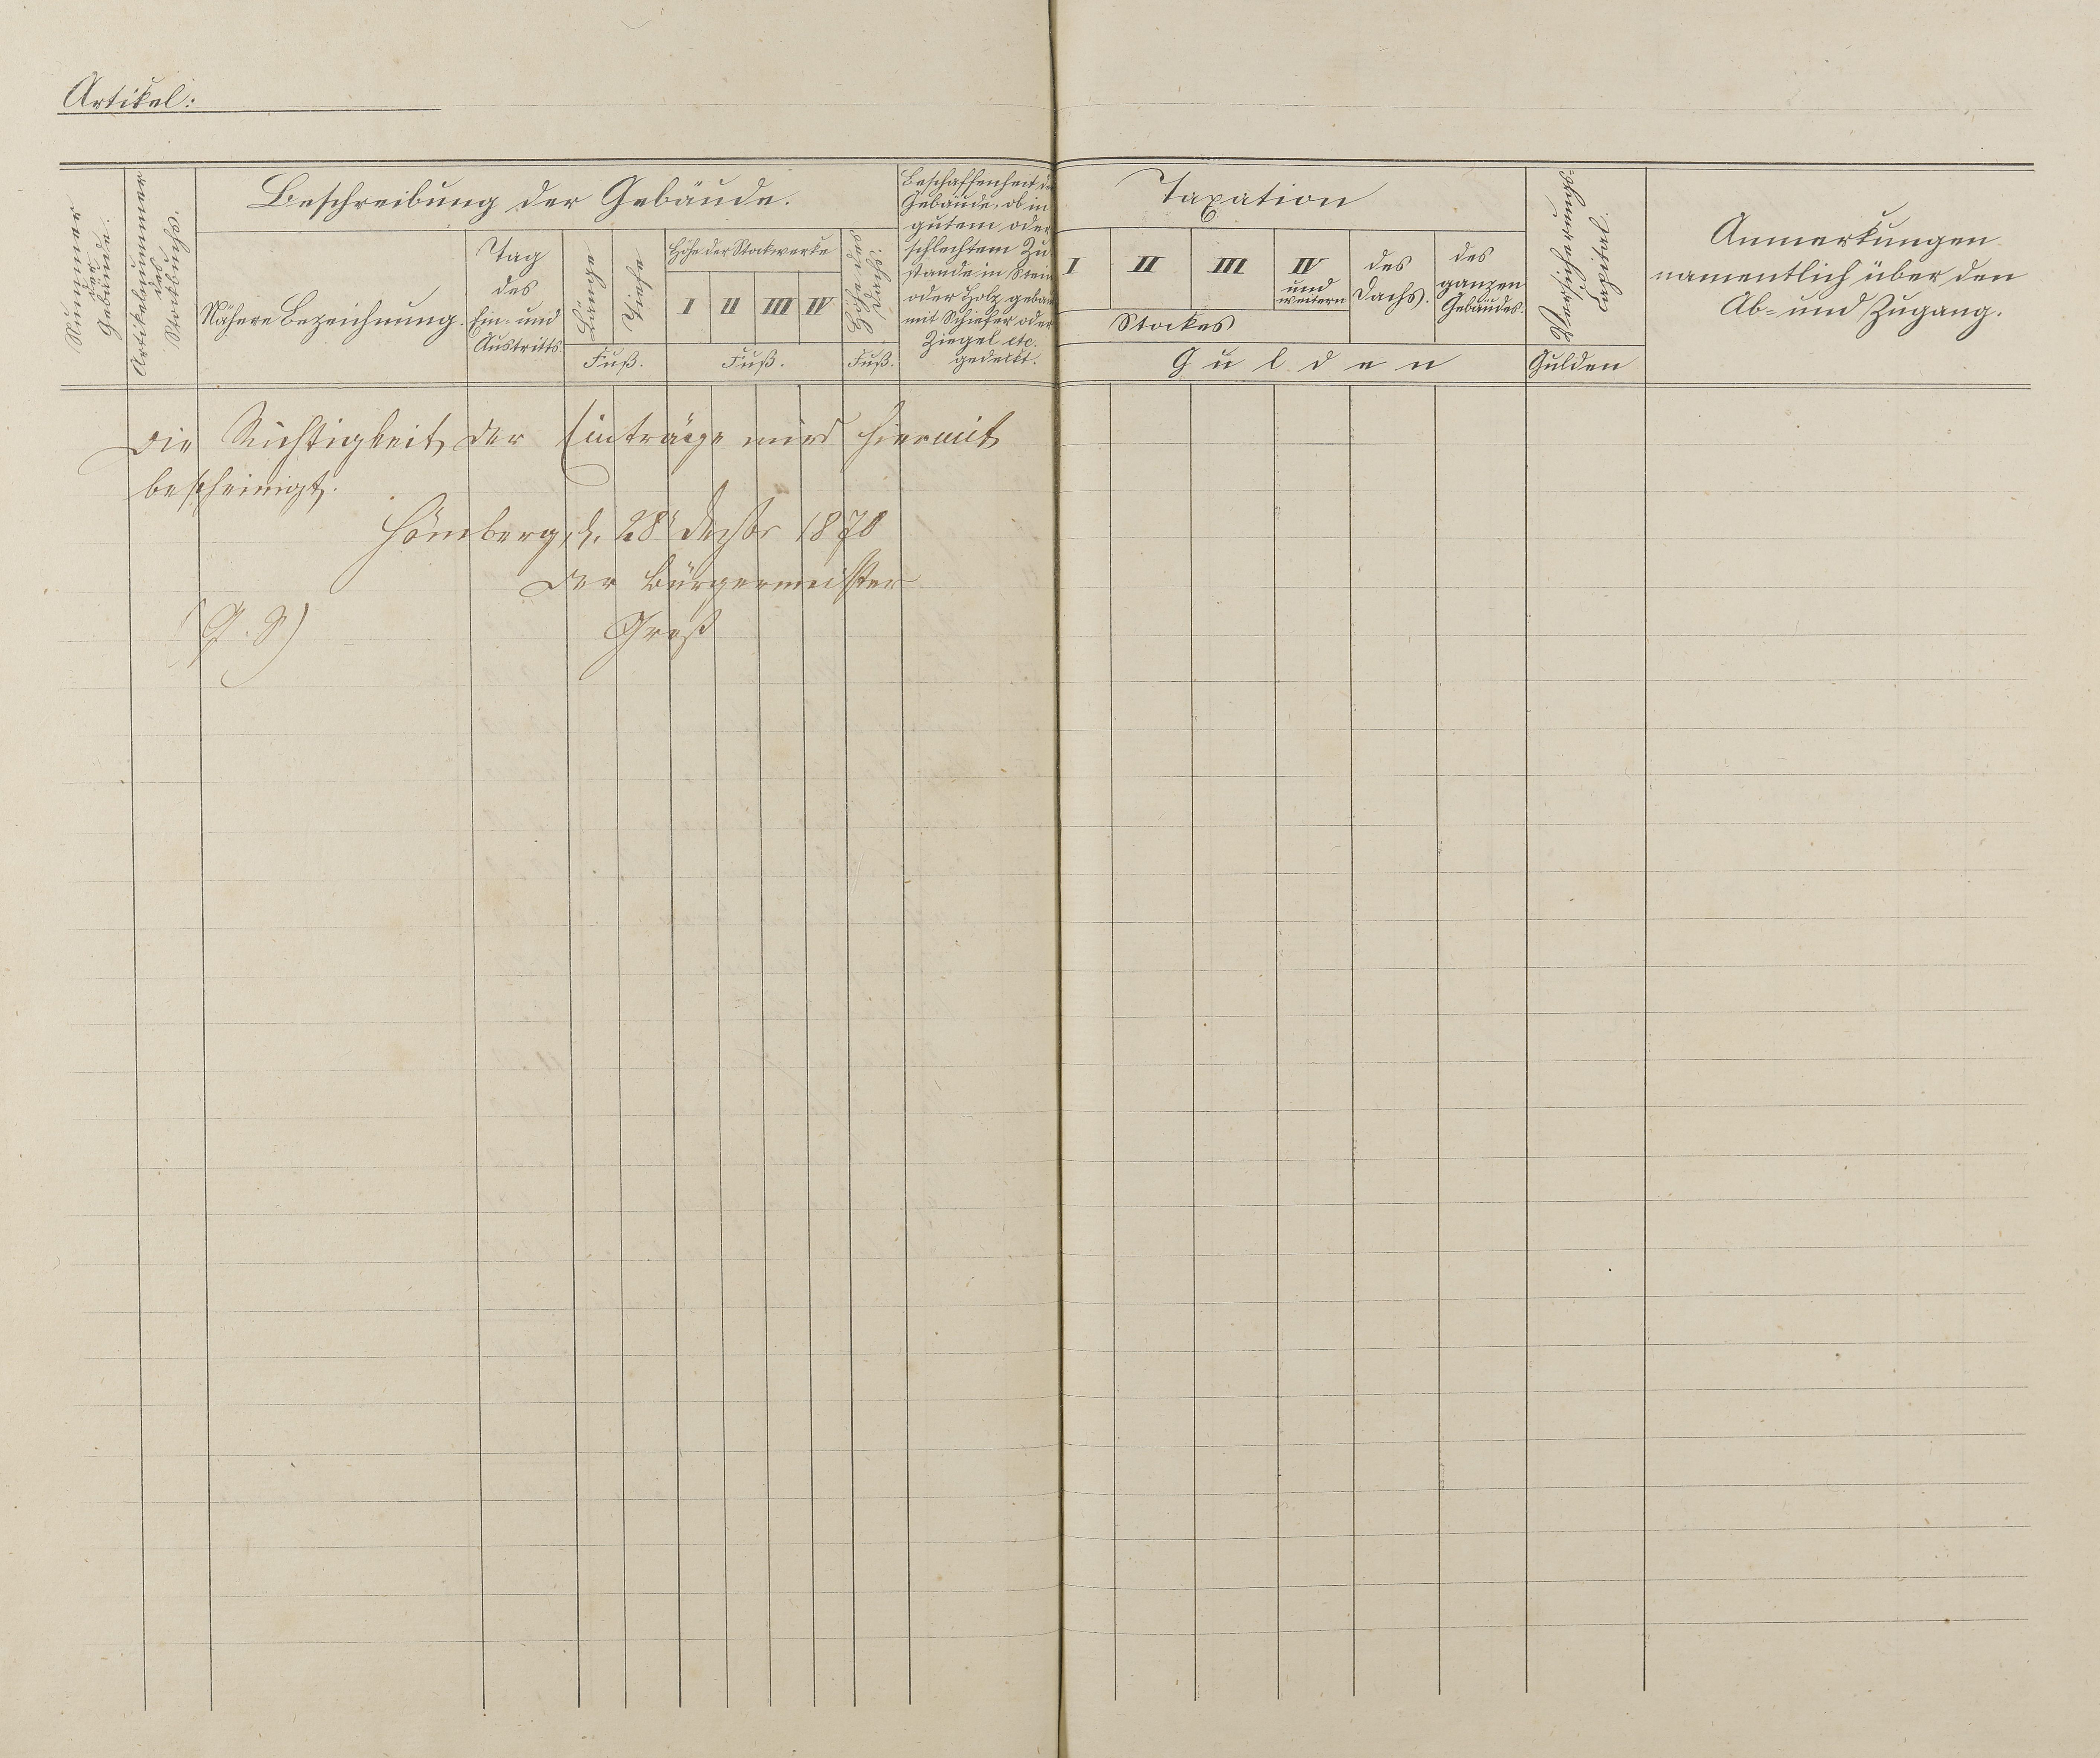 Artikel:
Nummer
der
Gebäude.
Artikelnummer
des
Stockbuchs.
Beschreibung der Gebäude.
Nähere Bezeichnung.
Tag
des
Ein- und
Austritts.
Länge
Tiefe
Fuß.
Höhe der Stockwerke
I II III IV
Fuß.
Höhe des
Dachs.
Fuß.
Beschaffenheit der
Gebäude, ob in
gutem oder
schlechtem Zu-
stande in Stein
oder Holz gebaut
mit Schiefer oder
Ziegel etc.
gedeckt.
Taxation
I II III IV
und
weitern
Stockes
des
Dachs.
des
ganzen
Gebäudes.
Gulden
Versicherungs-
Capital.
Gulden
Anmerkungen
namentlich über den
Ab- und Zugang.
Die Richtigkeit der Einträge wird hiermit
bescheinigt.
Hömberg, d. 28t Decbr 1870
Der Bürgermeister
(L. S.) Groß